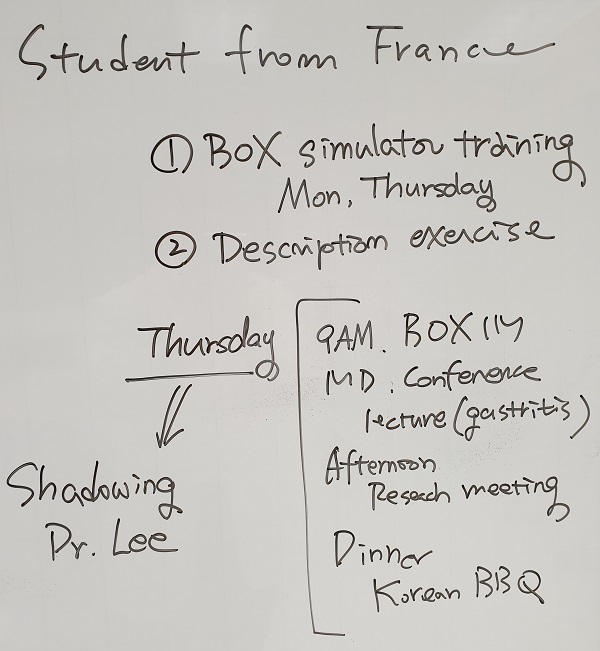 Student from France
① BOX simulator training
Mon, Thursday
② Description exercise
Thursday
Shadowing
Dr. Lee
9AM. BOX
MD. Conference
lecture (gastritis)
Afternoon
Reseach meeting
Dinner
Korean BBQ